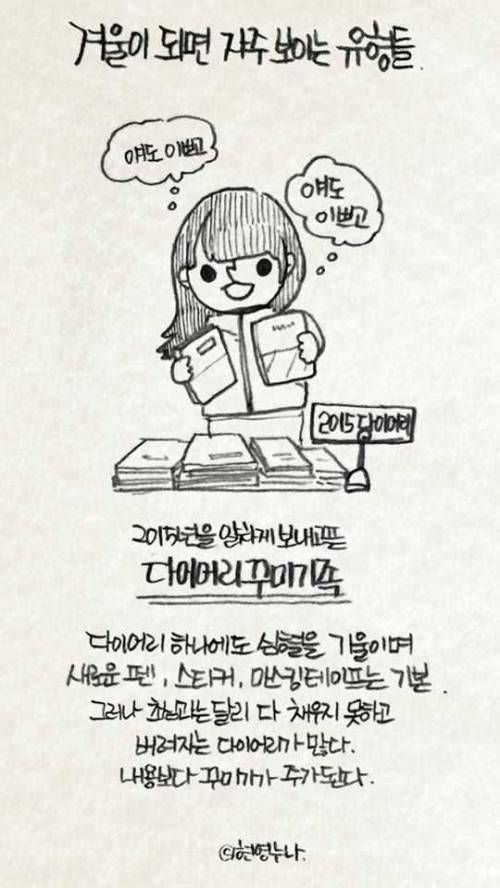 겨울이 되면 자주 보이는 유형들.
얘도 이쁘고
얘도
이쁘고
2015 다이어리
2015년을 알차게 보내고픈
다이어리꾸미기족
다이어리 하나에도 심혈을 기울이며
새로운 펜, 스티커, 마스킹테이프는 기본.
그러나 초심과는 달리 다 채우지 못하고
버려지는 다이어리가 많다.
내용보다 꾸미기가 주가된다.
©현영누나.